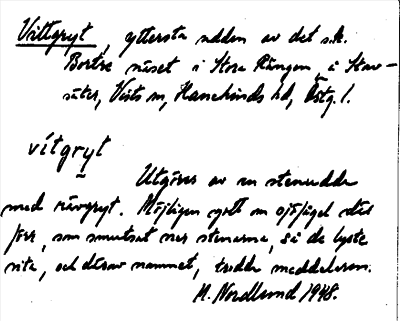 Vittgryt, yttersta udden av det s.k.
Bortre näset i Stora Rängen, i Stav-
säter, Vists sn, Hanekinds hd, Östg. l.
vítgryt
Utgöres av en stenudde
med rävgryt. Möjligen ett sjöfågel
förr, som smutsat ner stenarna, så de lyste
vita, och därav namnet, trodde meddelaren.
M. Nordlund 1948.